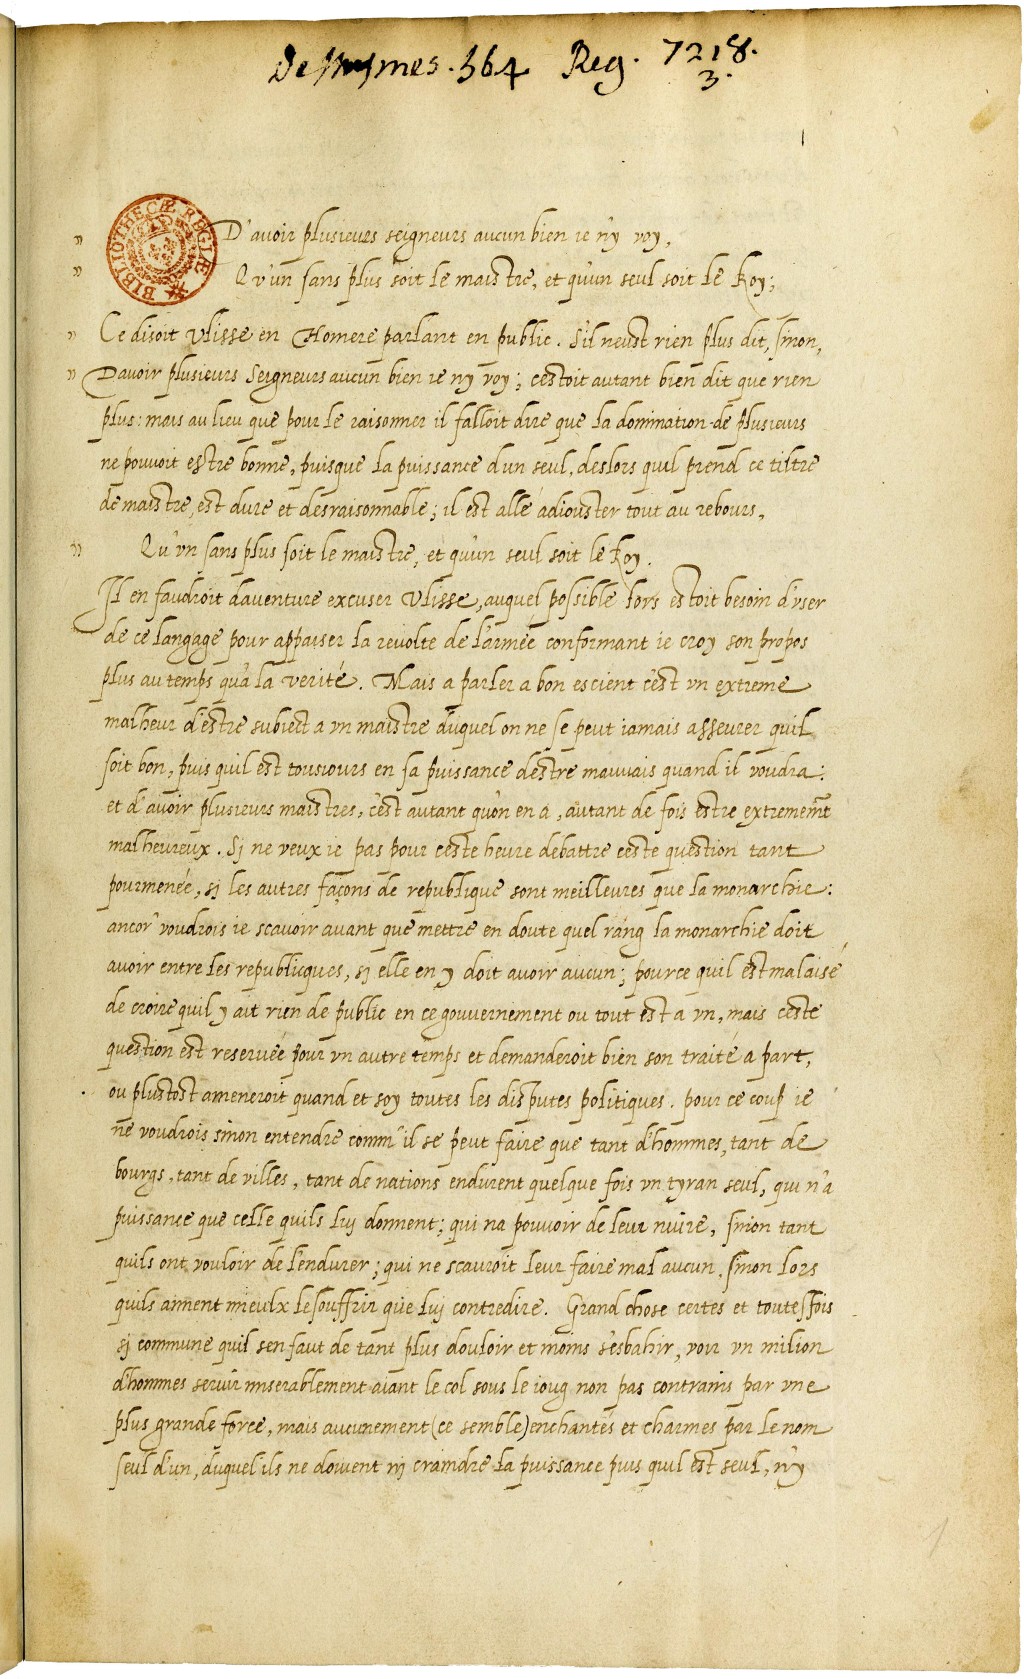 De mesmes. 564 Reg. 7218.
3.
1
BIBLIOTHECÆ REGIÆ
" D'avoir plusieurs seigneurs aucun bien ie n'y voy,
" Qu'un sans plus soit le maistre, et qu'un seul soit le Roy;
" Ce disoit Ulisse en Homere parlant en public. S'il neust rien plus dit, sinon,
" Davoir plusieurs Seigneurs aucun bien ie ny voy; cestoit autant bien dit que rien
plus: mais au lieu que pour le raisonner il falloit dire que la domination de plusieurs
ne pouvoit estre bonne, puisque la puissance dun seul, deslors quil prend ce tiltre
de maistre, est dure et desraisonnable; il est allé adiouster tout au rebours,
" Qu'vn sans plus soit le maistre, et qu'un seul soit le Roy.
Il en faudroit daventure excuser Vlisse, auquel possible lors estoit besoin d'vser
de ce langage pour appaiser la revolte de l'armée conformant ie croy son propos
plus au temps qu'a la verité. Mais a parler a bon escient c'est vn extreme
malheur d'estre subiect a vn maistre duquel on ne se peut iamais asseurer quil
soit bon, puis quil est tousiours en sa puissance destre mauvais quand il voudra:
et d'avoir plusieurs maistres, c'est autant qu'on en a, autant de fois estre extrememēt
malheureux. Sj ne veux ie pas pour ceste heure debattre ceste question tant
pourmenée, sj les autres façons de republique sont meilleures que la monarchie:
ancor' voudrois ie scavoir avant que mettre en doute quel rang la monarchie doit
avoir entre les republicques, sj elle en y doit avoir aucun; pource quil est malaisé
de croire quil y ait rien de public en ce gouvernement ou tout est a vn, mais ceste
question est reservée pour vn autre temps et demanderoit bien son traité a part,
ou plustost ameneroit quand et soy toutes les disputes politiques. pour ce coup ie
ne voudrois sinon entendre comm' il se peut faire que tant d'hommes, tant de
bourgs, tant de villes, tant de nations endurent quelque fois vn tyran seul, qui n'a
puissance que celle quils luj donnent; qui na pouvoir de leur nuire, sinon tant
quils ont vouloir de l'endurer; qui ne scauroit leur faire mal aucun, sinon lors
quils aiment mieulx le souffrir que luj contredire. Grand chose certes et toutesfois
sj commune quil sen faut de tant plus douloir et moins s'esbahir, voir vn milion
d'hommes servir miserablement aiant le col sous le ioug non pas contrains par vne
plus grande force, mais aucunement (ce semble) enchantés et charmes par le nom
seul d'un, duquel ils ne doivent nj craindre la puissance puis quil est seul, n'y